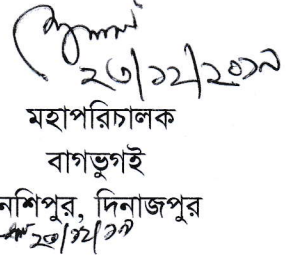 ২৩/১২/২০১৯
মহাপরিচালক
বাগভুগই
নশিপুর, দিনাজপুর
২৩/১২/১৯